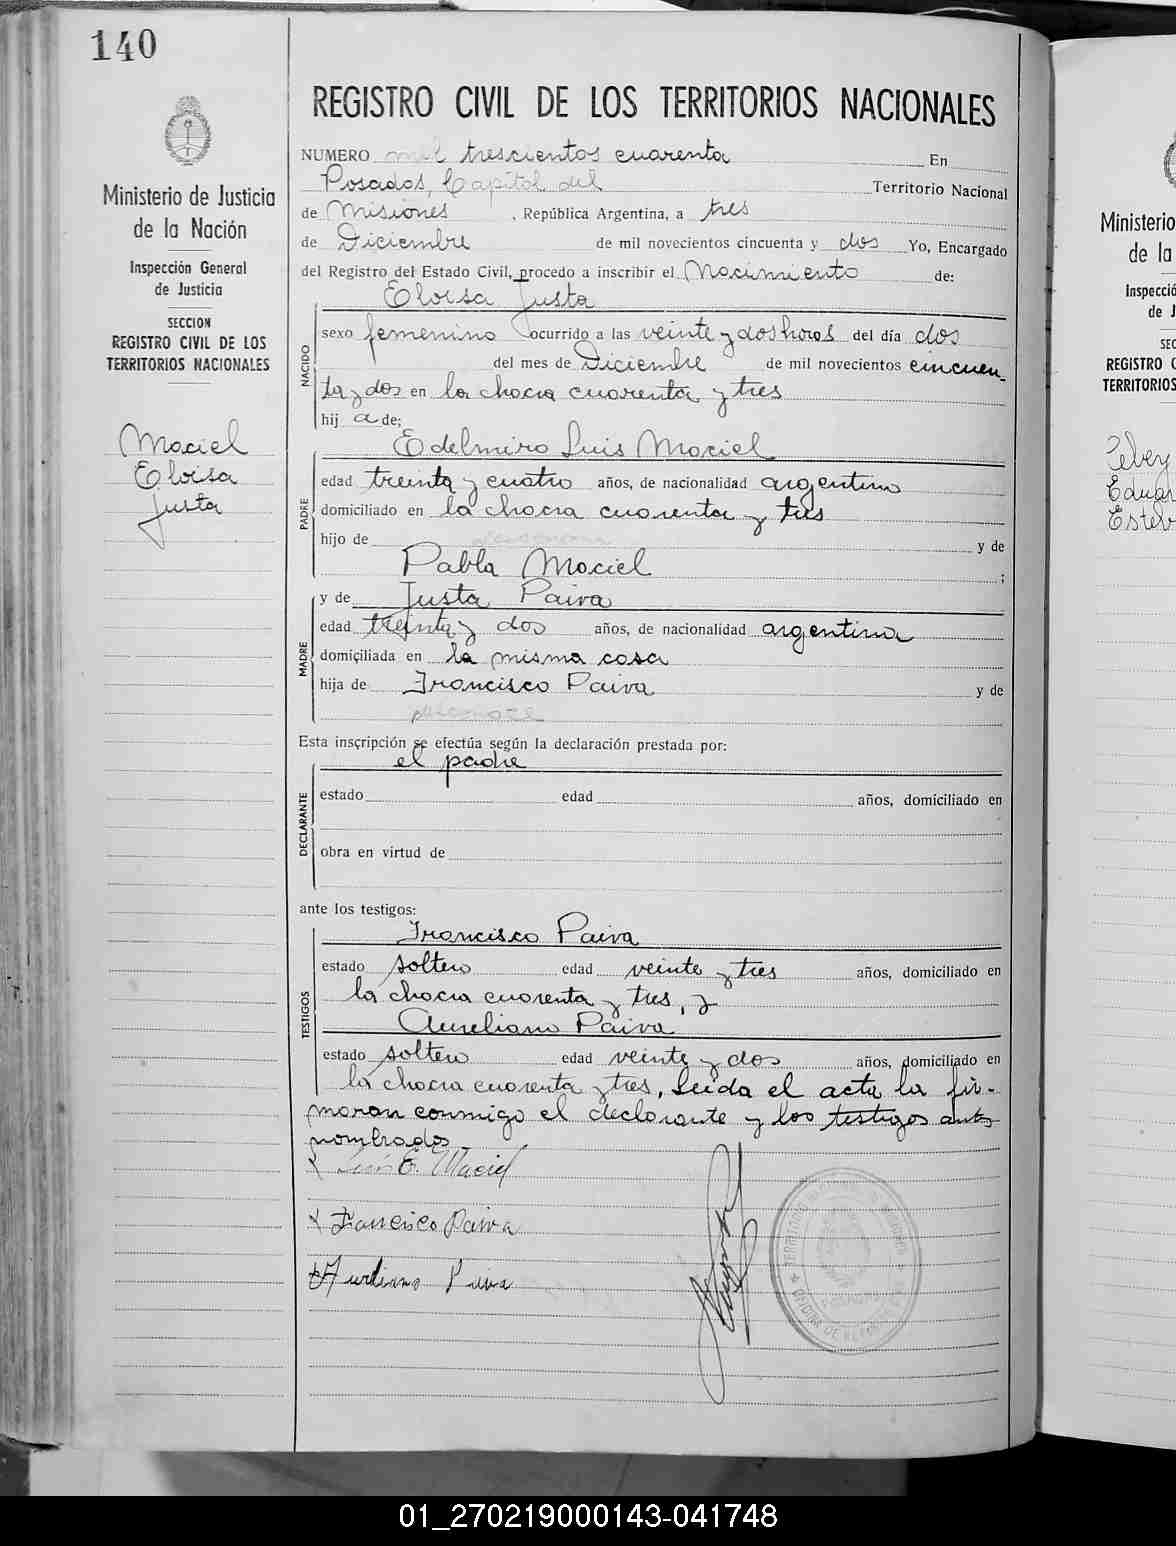 140
REGISTRO CIVIL DE LOS TERRITORIOS NACIONALES
Ministerio de Justicia
de la Nación
Inspección General
de Justicia
SECCION
REGISTRO CIVIL DE LOS
TERRITORIOS NACIONALES
Maciel
Eloisa
Justa
NUMERO mil trescientos cuarenta En
Posadas, Capital del Territorio Nacional
de Misiones, República Argentina, a tres
de Diciembre de mil novecientos cincuenta y dos Yo, Encargado
del Registro del Estado Civil, procedo a inscribir el Nacimiento de:
Eloisa Justa
NACIDO
sexo femenino ocurrido a las veinte y dos horas del día dos
del mes de Diciembre de mil novecientos cincuen-
ta y dos en la chacra cuarenta y tres
hij a de:
Edelmiro Luis Maciel
PADRE
edad treinta y cuatro años, de nacionalidad argentino
domiciliado en la chacra cuarenta y tres
hijo de y de
Pabla Maciel ;
MADRE
y de Justa Paiva
edad treinta y dos años, de nacionalidad argentina
domiciliada en la misma casa
hija de Francisco Paiva y de
Esta inscripción se efectúa según la declaración prestada por:
el padre
DECLARANTE
estado edad años, domiciliado en
obra en virtud de
ante los testigos:
TESTIGOS
Francisco Paiva
estado soltero edad veinte y tres años, domiciliado en
la chacra cuarenta y tres, y
Aureliano Paiva
estado soltero edad veinte y dos años, domiciliado en
la chacra cuarenta y tres. Leida el acta la fir-
maron conmigo el declarante y los testigos antes
nombrados
x Luis E. Maciel
x Francisco Paiva
x Aureliano Paiva
Ministerio
de la
REGISTRO
TERRITORIOS
01_270219000143-041748